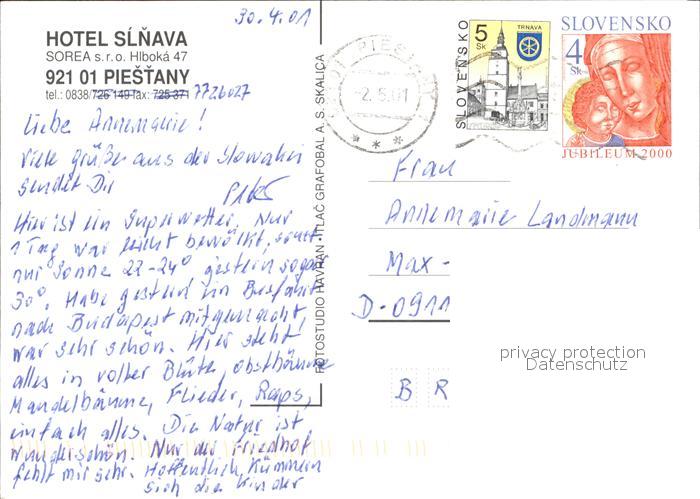 30.4.01
HOTEL SĹŇAVA
SOREA s.r.o. Hlboká 47
921 01 PIEŠŤANY
tel.: 0838/726 149 fax: 725 371 7726027
Liebe Annemarie!
Viele Grüße aus der Slowakei
sendet Dir
Hier ist ein Superwetter. Nur
1 Tag war leicht bewölkt, sonst
nur Sonne 22-24° gestern sogar
30°. Habe gestern ein Busfahrt
nach Budapest mitgemacht,
war sehr schön. Hier steht
alles in voller Blüte, Obstbäume
Mandelbäume, Flieder, Raps,
einfach alles. Die Natur ist
wunderschön. Nur der Friedhof
fehlt mir sehr. Hoffentlich kümmern
sich die Kinder
FOTOSTUDIO HAVRAN • TLAČ GRAFOBAL A. S. SKALICA
PIEŠŤANY
-2.5.01
SLOVENSKO
5 Sk
TRNAVA
SLOVENSKO
4 Sk
JUBILEUM 2000
Frau
Annemarie Landmann
Max-
D-0911
B R
privacy protection
Datenschutz